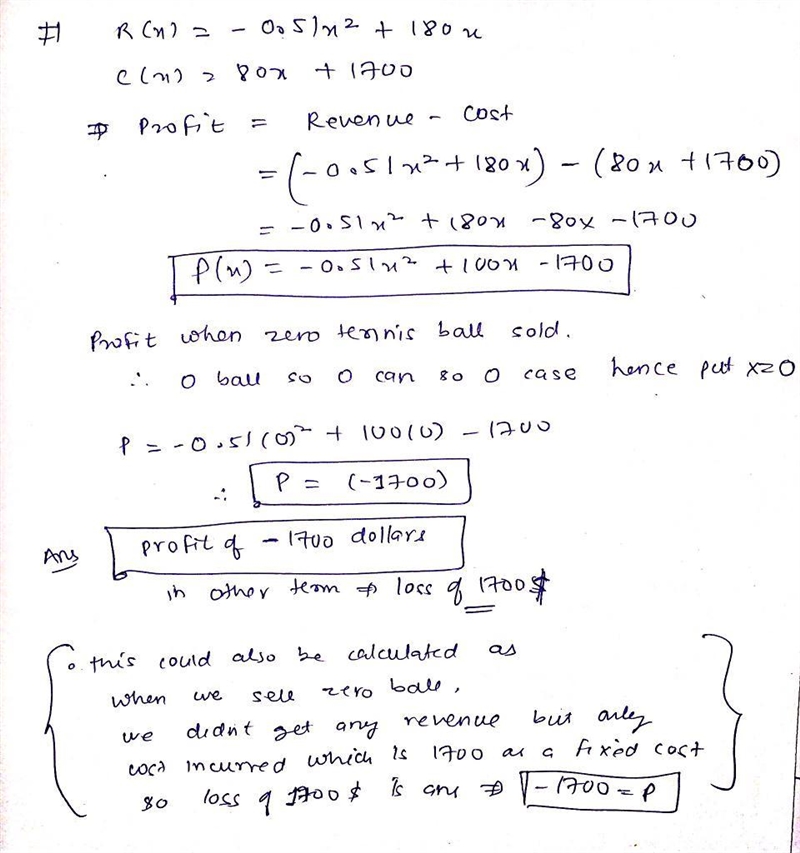 # R(x) = - 0.51x² + 180x
C(x) = 80x + 1700
⇒ Profit = Revenue - cost
= (-0.51x² + 180x) - (80x + 1700)
= -0.51x² + 180x - 80x - 1700
P(x) = -0.51x² + 100x - 1700
Profit when zero tennis ball sold.
∴ 0 ball so 0 can so 0 case hence put x=0
P = -0.51(0)² + 100(0) - 1700
∴ P = (-1700)
Ans profit of -1700 dollars
in other term ⇒ loss of 1700$
this could also be calculated as
when we sell zero ball,
we didn't get any revenue but only
cost incurred which is 1700 as a fixed cost
so loss of 1700$ is ans ⇒ -1700 = P